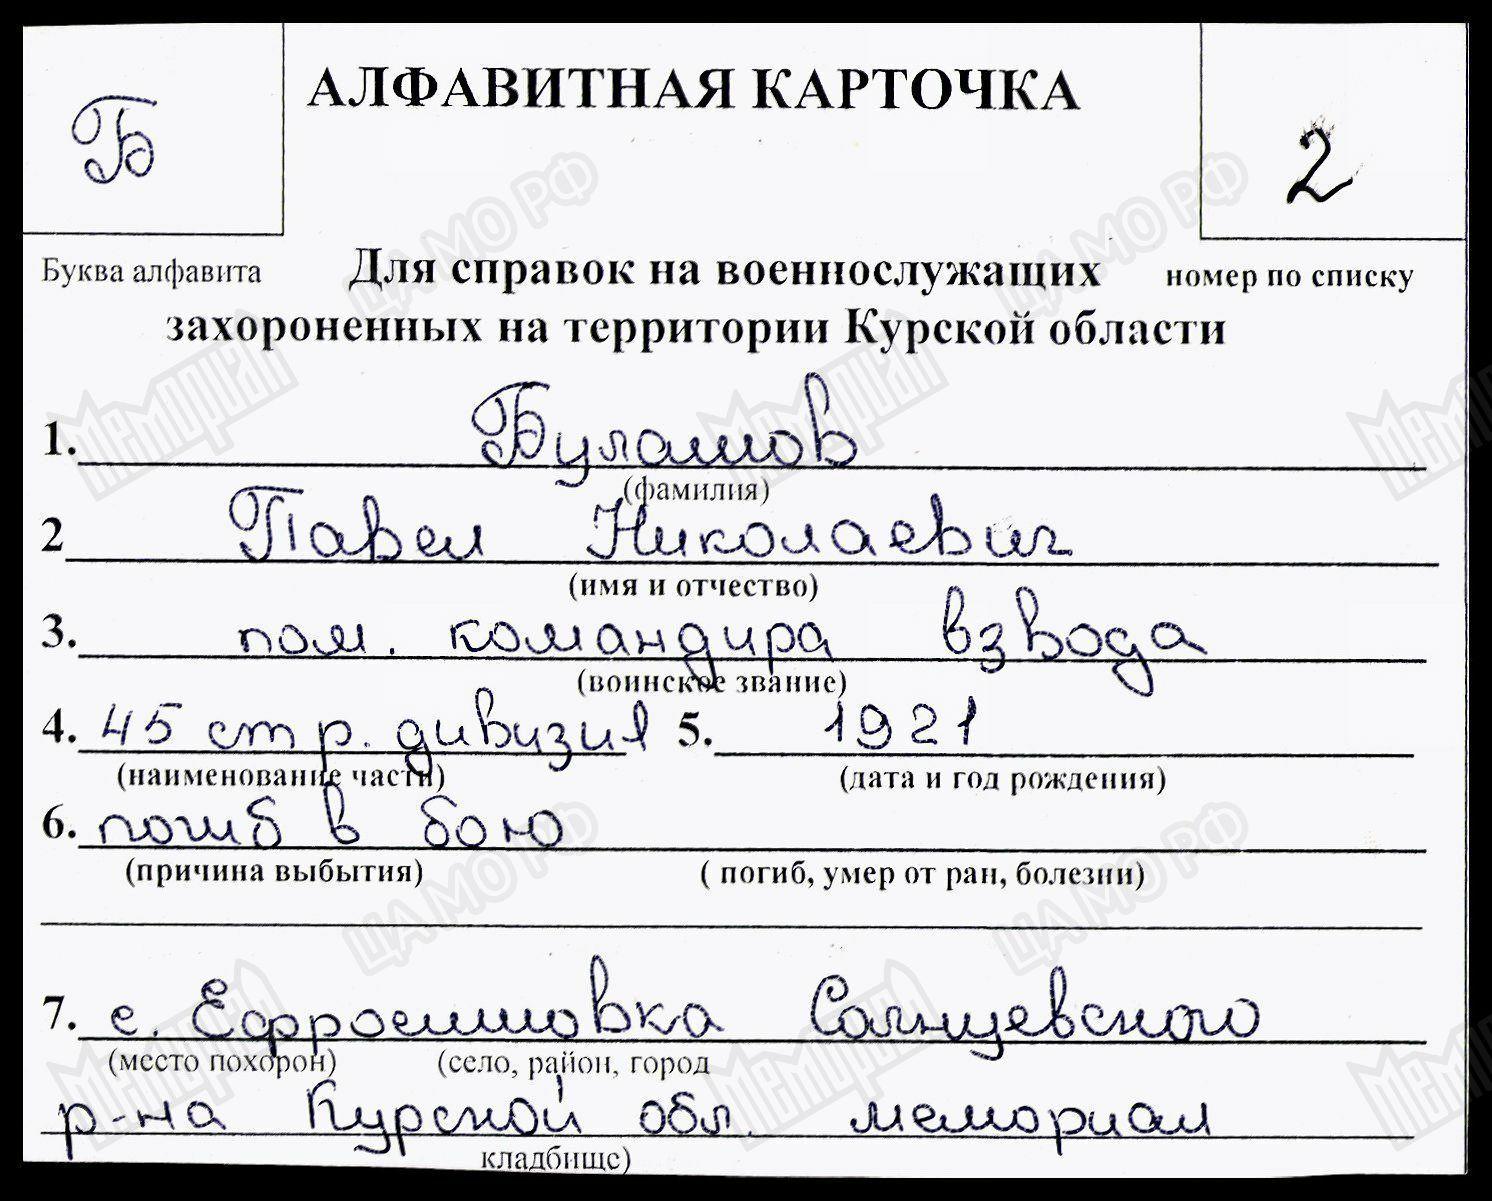 Б
АЛФАВИТНАЯ КАРТОЧКА
2
Буква алфавита
Для справок на военнослужащих
номер по списку
захороненных на территории Курской области
1. Булашов
(фамилия)
2 Павел Николаевич
(имя и отчество)
3. пом. командира взвода
(воинское звание)
4. 45 стр. дивизия 5. 1921
(наименование части) (дата и год рождения)
6. погиб в бою
(причина выбытия) ( погиб, умер от ран, болезни)
7. с. Ефросимовка Солнцевского
(место похорон) (село, район, город
р-на Курской обл. мемориал
кладбище)
ЦАМО РФ
Мемориал